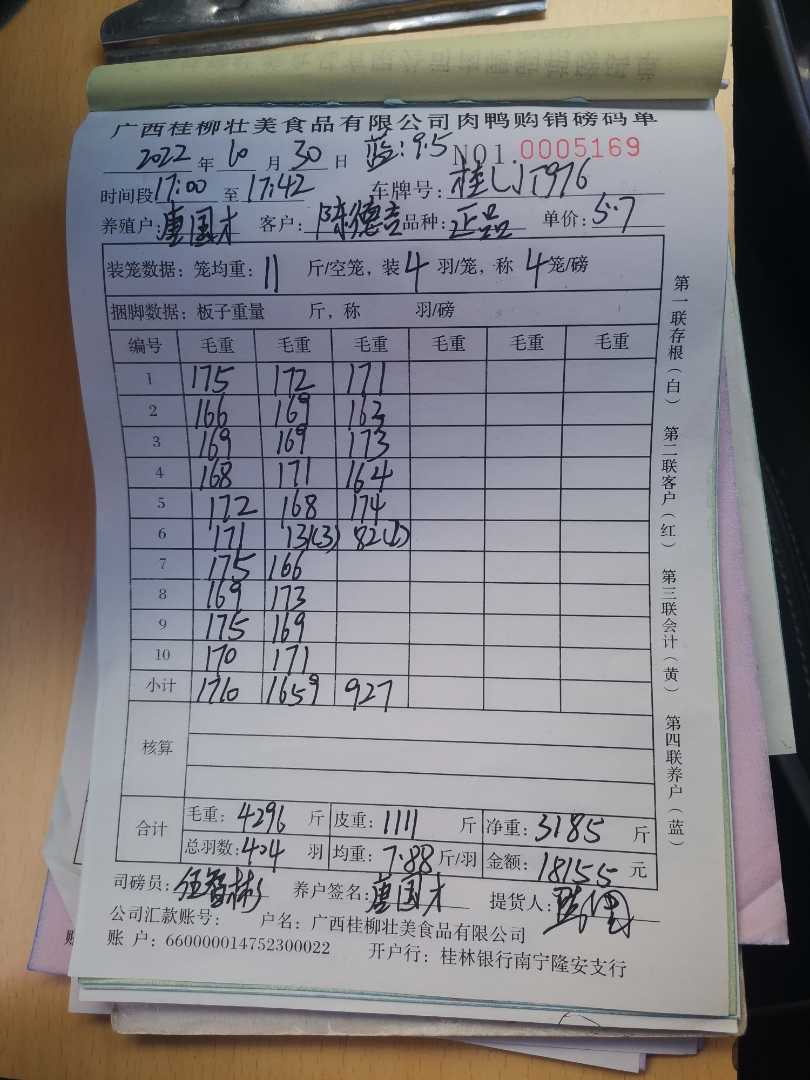 广西桂柳壮美食品有限公司肉鸭购销磅码单
2022 年 10 月 30 日 蓝:9.5 NO1.0005169
时间段 17:00 至 17:42 车牌号: 桂LJT976
养殖户: 唐国才 客户: 陈德吉 品种: 正品 单价: 5.7
装笼数据: 笼均重: 11 斤/空笼, 装 4 羽/笼, 称 4 笼/磅
捆脚数据: 板子重量 斤, 称 羽/磅
编号 毛重 毛重 毛重 毛重 毛重 毛重
1 175 172 171
2 166 169 163
3 169 169 173
4 168 171 164
5 172 168 174
6 171 131(3) 82(2)
7 175 166
8 169 173
9 175 169
10 170 171
小计 1710 1659 927
核算
合计 毛重: 4296 斤 皮重: 1111 斤 净重: 3185 斤
总羽数: 404 羽 均重: 7.88 斤/羽 金额: 18155 元
司磅员: 伍智彬 养户签名: 唐国才 提货人:
公司汇款账号: 户名: 广西桂柳壮美食品有限公司
账 户: 660000014752300022 开户行: 桂林银行南宁隆安支行
第一联存根(白) 第二联客户(红) 第三联会计(黄) 第四联养户(蓝)